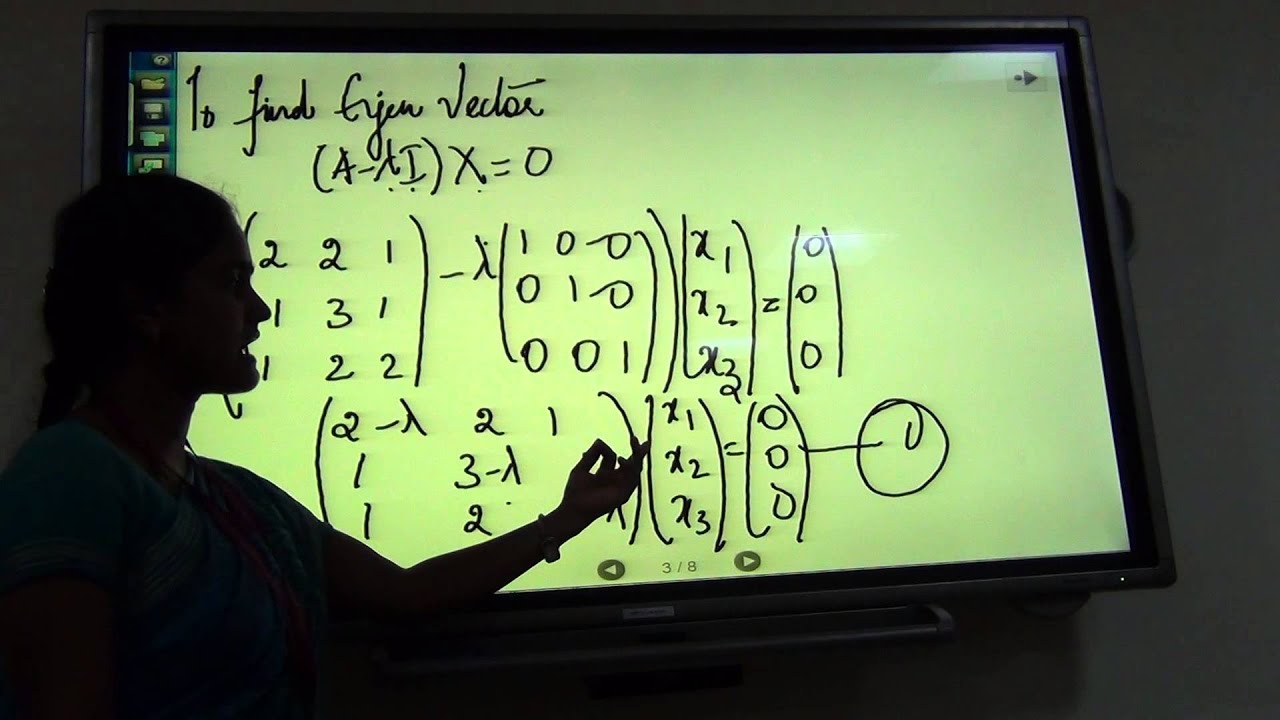 To find Eigen Vector
(A-λI) X = 0
2 2 1
1 3 1
1 2 2
- λ
1 0 0
0 1 0
0 0 1
x1
x2
x3
=
0
0
0
2-λ 2 1
1 3-λ
1 2 λ
x1
x2
x3
=
0
0
0
1
3 / 8